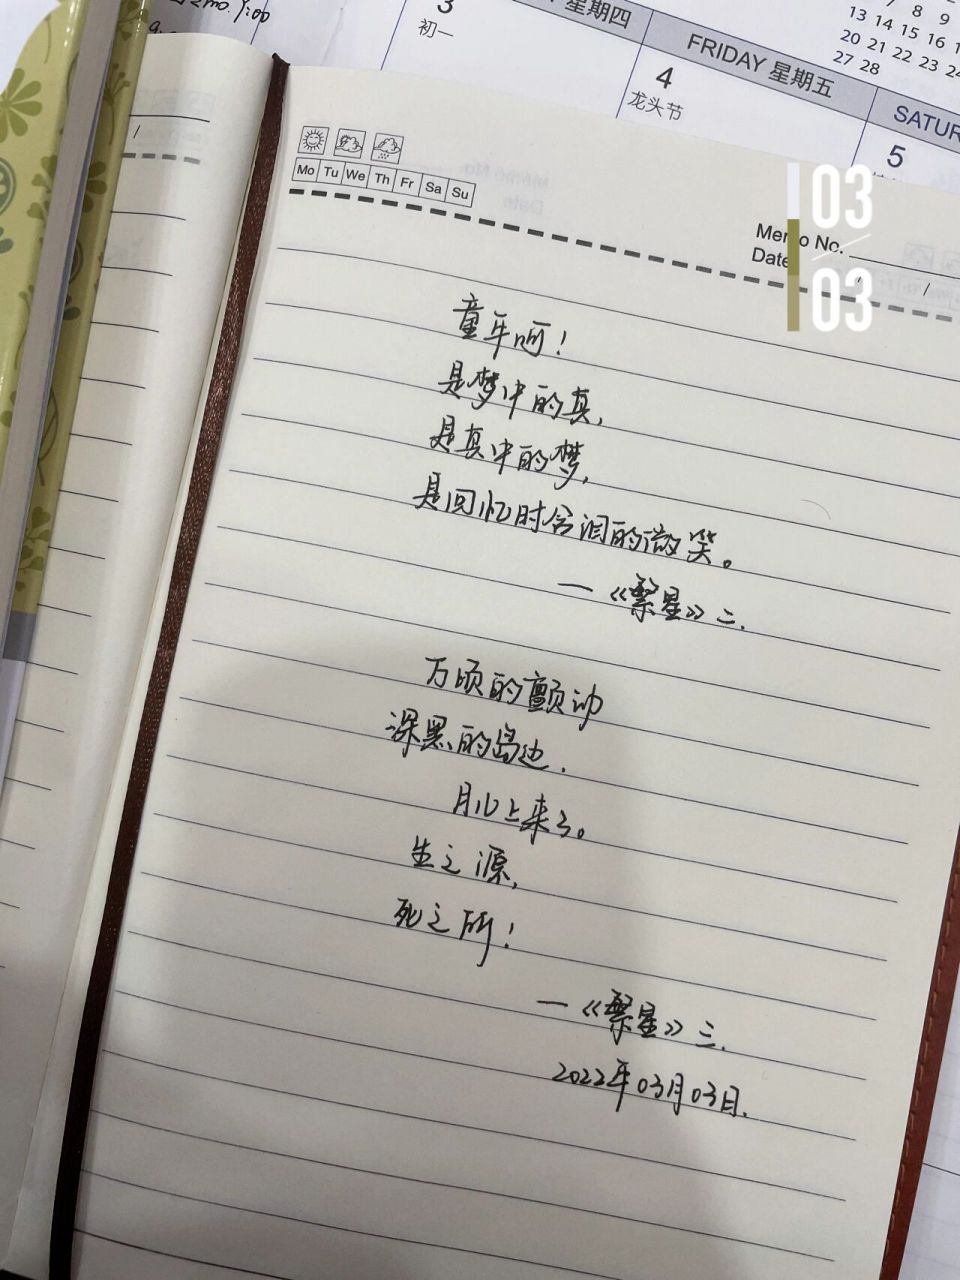 3
初一
星期四
FRIDAY 星期五
4
龙头节
SATUR
5
7 8 9
13 14 15 16
20 21 22 23 24
27 28
03
03
Mo Tu We Th Fr Sa Su
Memo No.
Date / /
童年呵!
是梦中的真,
是真中的梦,
是回忆时含泪的微笑。
一《繁星》二.
万顷的颤动
深黑的岛边.
月儿上来了。
生之源,
死之所!
一《繁星》三.
2022年03月03日.